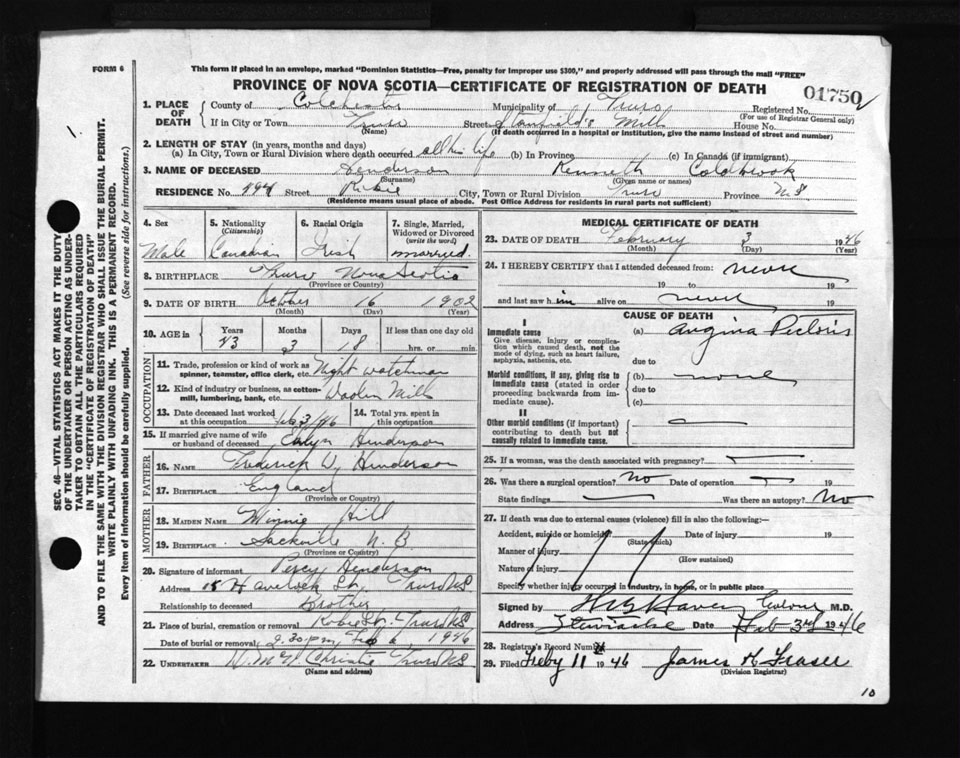 FORM 6
This form if placed in an envelope, marked "Dominion Statistics—Free, penalty for improper use $300," and properly addressed will pass through the mail "FREE"
PROVINCE OF NOVA SCOTIA—CERTIFICATE OF REGISTRATION OF DEATH
01750
1. PLACE OF DEATH County of Colchester Municipality of Truro Registered No.
(For use of Registrar General only)
If in City or Town Truro Street Stanfield's Mill House No.
(Name) (If death occurred in a hospital or institution, give the name instead of street and number)
2. LENGTH OF STAY (in years, months and days)
(a) In City, Town or Rural Division where death occurred all his life (b) In Province (c) In Canada (if immigrant)
3. NAME OF DECEASED Henderson Kenneth Coldbrook
(Surname) (Given name or names)
RESIDENCE No. Street City, Town or Rural Division Truro Province N.S
(Residence means usual place of abode. Post Office Address for residents in rural parts not sufficient)
4. Sex 5. Nationality (Citizenship) 6. Racial Origin 7. Single, Married, Widowed or Divorced (write the word)
Male Canadian Irish married.
8. BIRTHPLACE Truro Nova Scotia
(Province or Country)
9. DATE OF BIRTH October 16 1902
(Month) (Day) (Year)
10. AGE in Years Months Days If less than one day old
43 3 18 hrs. or min.
OCCUPATION
11. Trade, profession or kind of work as spinner, teamster, office clerk, etc. Night watchman
12. Kind of industry or business, as cotton-mill, lumbering, bank, etc. Woolen Mill
13. Date deceased last worked at this occupation Feb 3/46 14. Total yrs. spent in this occupation
15. If married give name of wife or husband of deceased Henderson
FATHER
16. NAME Frederick W. Henderson
17. BIRTHPLACE England
(Province or Country)
MOTHER
18. MAIDEN NAME Minnie Hill
19. BIRTHPLACE Sackville N.B.
(Province or Country)
20. Signature of informant Percy Henderson
Address 15 Havelock St, Truro NS
Relationship to deceased Brother
21. Place of burial, cremation or removal Robie St. - Truro NS
Date of burial or removal 2.30 p.m Feb 6 1946
22. UNDERTAKER Christie Truro NS
(Name and address)
MEDICAL CERTIFICATE OF DEATH
23. DATE OF DEATH February 3 1946
(Month) (Day) (Year)
24. I HEREBY CERTIFY that I attended deceased from never
19 to 19
and last saw him alive on never 19
CAUSE OF DEATH
I
Immediate cause (a) Angina Pectoris
Give disease, injury or complication which caused death, not the mode of dying, such as heart failure, asphyxia, asthenia, etc.
due to
Morbid conditions, if any, giving rise to immediate cause (stated in order proceeding backwards from immediate cause). (b) none
due to
(c)
II
Other morbid conditions (if important) contributing to death but not causally related to immediate cause.
25. If a woman, was the death associated with pregnancy?
26. Was there a surgical operation? No Date of operation 19
State findings Was there an autopsy? No
27. If death was due to external causes (violence) fill in also the following:—
Accident, suicide or homicide? Date of injury 19
(State which)
Manner of injury
(How sustained)
Nature of injury
Specify whether injury occurred in industry, in home, or in public place
Signed by M.D.
Address Stewiacke Date Feb 3rd 1946
28. Registrar's Record Number
29. Filed Feby 11 1946 James H Fraser
(Division Registrar)
10
SEC. 46—VITAL STATISTICS ACT MAKES IT THE DUTY
OF THE UNDERTAKER OR PERSON ACTING AS UNDER-
TAKER TO OBTAIN ALL THE PARTICULARS REQUIRED
IN THE "CERTIFICATE OF REGISTRATION OF DEATH"
AND TO FILE THE SAME WITH THE DIVISION REGISTRAR WHO SHALL ISSUE THE BURIAL PERMIT.
WRITE PLAINLY WITH UNFADING INK. THIS IS A PERMANENT RECORD.
Every item of information should be carefully supplied. (See reverse side for instructions.)